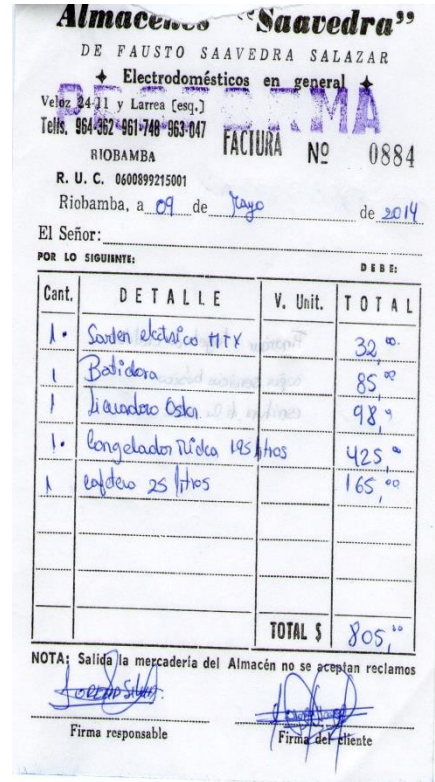 Almacenes "Saavedra"
DE FAUSTO SAAVEDRA SALAZAR
Electrodomésticos en general
PROFORMA
Veloz 24-11 y Larrea [esq.]
Telfs. 964-362 -961-748 -963-047
FACTURA Nº 0884
RIOBAMBA
R. U. C. 0600899215001
Riobamba, a 09 de Mayo de 2014
El Señor:
POR LO SIGUIENTE: DEBE:
Cant. DETALLE V. Unit. TOTAL
1 Sarten electrico 32,00
1 Batidora 85,00
1 Licuadora Oster 98,00
1 Congelador 195 litros 425,00
1 cafetera 25 litros 165,00
TOTAL $ 805,00
NOTA: Salida la mercadería del Almacén no se aceptan reclamos
Firma responsable Firma del cliente